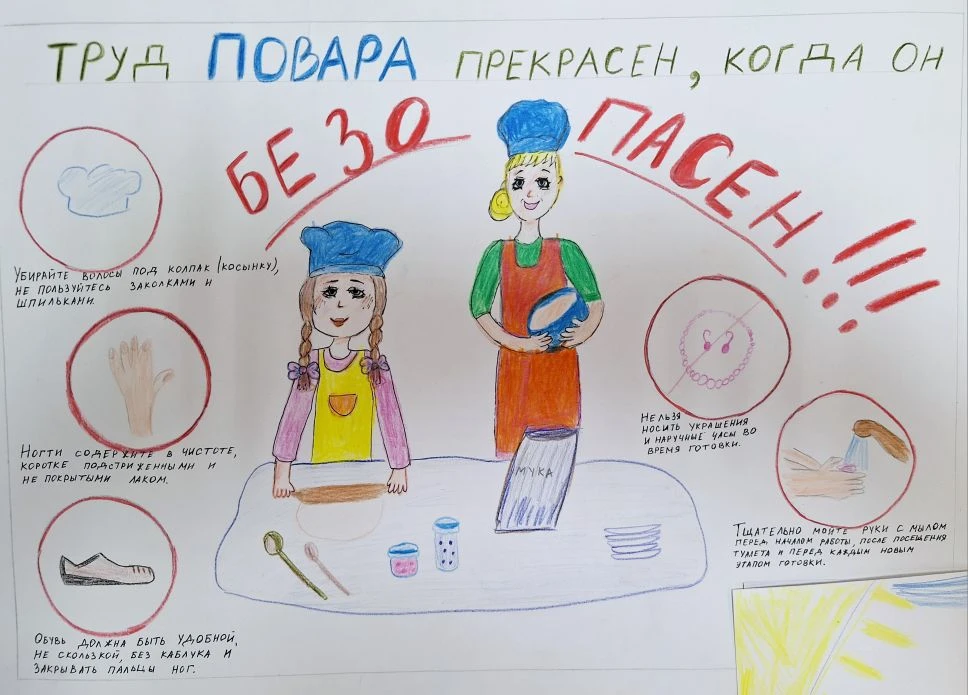 ТРУД ПОВАРА ПРЕКРАСЕН, КОГДА ОН
БЕЗО ПАСЕН!!!
УБИРАЙТЕ ВОЛОСЫ ПОД КОЛПАК (КОСЫНКУ),
НЕ ПОЛЬЗУЙТЕСЬ ЗАКОЛКАМИ И
ШПИЛЬКАМИ.
НОГТИ СОДЕРЖИТЕ В ЧИСТОТЕ,
КОРОТКЕ ПОДСТРИЖЕННЫМИ И
НЕ ПОКРЫТЫМИ ЛАКОМ.
ОБУВЬ ДОЛЖНА БЫТЬ УДОБНОЙ,
НЕ СКОЛЬЗКОЙ, БЕЗ КАБЛУКА И
ЗАКРЫВАТЬ ПАЛЬЦЫ НОГ.
МУКА
НЕЛЬЗЯ
НОСИТЬ УКРАШЕНИЯ
И НАРУЧНЫЕ ЧАСЫ ВО
ВРЕМЯ ГОТОВКИ.
ТЩАТЕЛЬНО МОЙТЕ РУКИ С МЫЛОМ
ПЕРЕД НАЧАЛОМ РАБОТЫ, ПОСЛЕ ПОСЕЩЕНИЯ
ТУАЛЕТА И ПЕРЕД КАЖДЫМ НОВЫМ
ЭТАПОМ ГОТОВКИ.